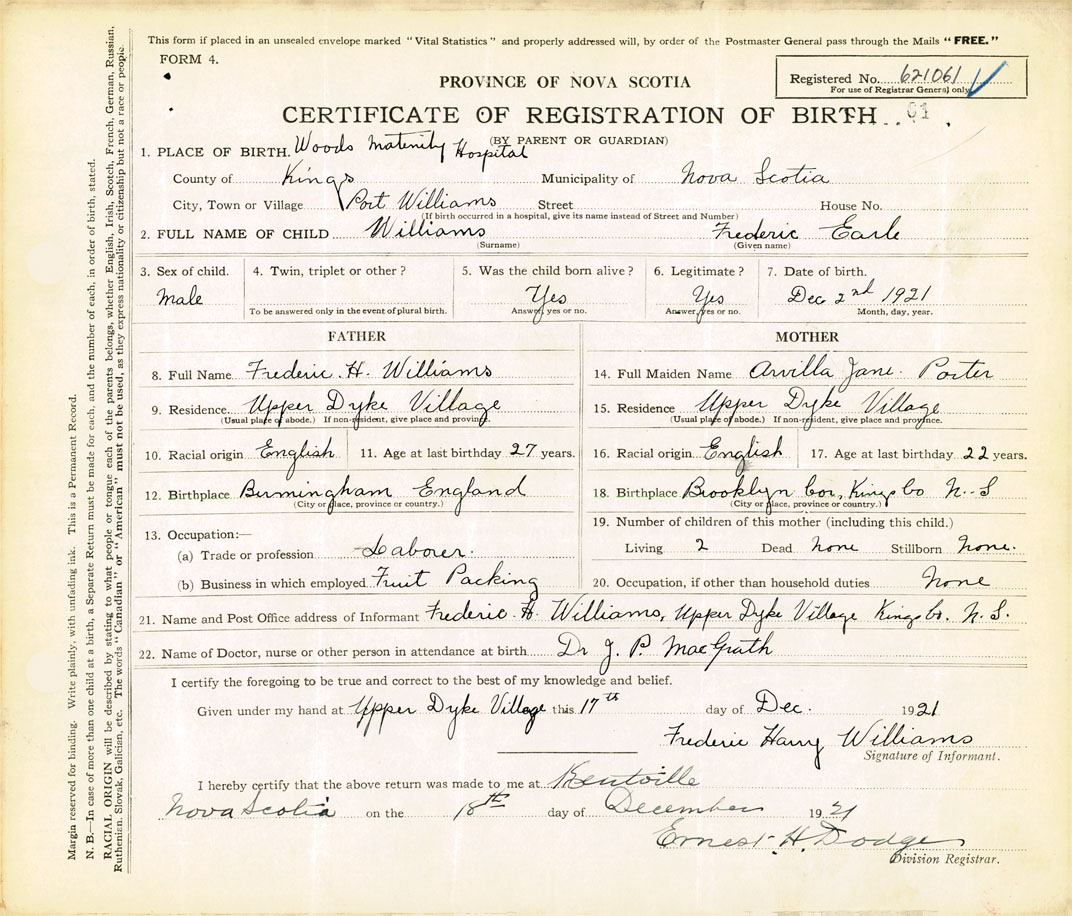 This form if placed in an unsealed envelope marked "Vital Statistics" and properly addressed will, by order of the Postmaster General pass through the Mails "FREE."
FORM 4.
Registered No. 621061
For use of Registrar General only
PROVINCE OF NOVA SCOTIA
CERTIFICATE OF REGISTRATION OF BIRTH
(BY PARENT OR GUARDIAN)
1. PLACE OF BIRTH. Woods Maternity Hospital
County of Kings Municipality of Nova Scotia
City, Town or Village Port Williams Street House No.
(If birth occurred in a hospital, give its name instead of Street and Number)
2. FULL NAME OF CHILD Williams Frederic Earle
(Surname) (Given name)
3. Sex of child. 4. Twin, triplet or other? 5. Was the child born alive? 6. Legitimate? 7. Date of birth.
Male Yes Yes Dec 2nd 1921
To be answered only in the event of plural birth. Answer, yes or no. Answer, yes or no. Month, day, year.
FATHER
8. Full Name Frederic H. Williams
9. Residence. Upper Dyke Village
(Usual place of abode.) If non-resident, give place and province.
10. Racial origin English 11. Age at last birthday 27 years.
12. Birthplace Birmingham England
(City or place, province or country.)
13. Occupation:—
(a) Trade or profession Laborer.
(b) Business in which employed Fruit Packing
MOTHER
14. Full Maiden Name Arvilla Jane Porter
15. Residence Upper Dyke Village
(Usual place of abode.) If non-resident, give place and province.
16. Racial origin English 17. Age at last birthday 22 years.
18. Birthplace Brooklyn Cor, Kings Co N.S
(City or place, province or country.)
19. Number of children of this mother (including this child.)
Living 2 Dead None Stillborn None.
20. Occupation, if other than household duties None
21. Name and Post Office address of Informant Frederic H. Williams, Upper Dyke Village Kings Co. N.S.
22. Name of Doctor, nurse or other person in attendance at birth Dr J. P. MacGrath
I certify the foregoing to be true and correct to the best of my knowledge and belief.
Given under my hand at Upper Dyke Village this 17th day of Dec. 1921
Frederic Harry Williams
Signature of Informant.
I hereby certify that the above return was made to me at Kentville
Nova Scotia on the 18th day of December 1921
Ernest H. Dodge
Division Registrar.
Margin reserved for binding. Write plainly, with unfading ink. This is a Permanent Record.
N. B.—In case of more than one child at a birth, a Separate Return must be made for each, and the number of each, in order of birth, stated.
RACIAL ORIGIN will be described by stating to what people or tongue each of the parents belongs, whether English, Irish, Scotch, French, German, Russian,
Ruthenian, Slovak, Galician, etc. The words "Canadian" or "American" must not be used, as they express nationality or citizenship but not a race or people.